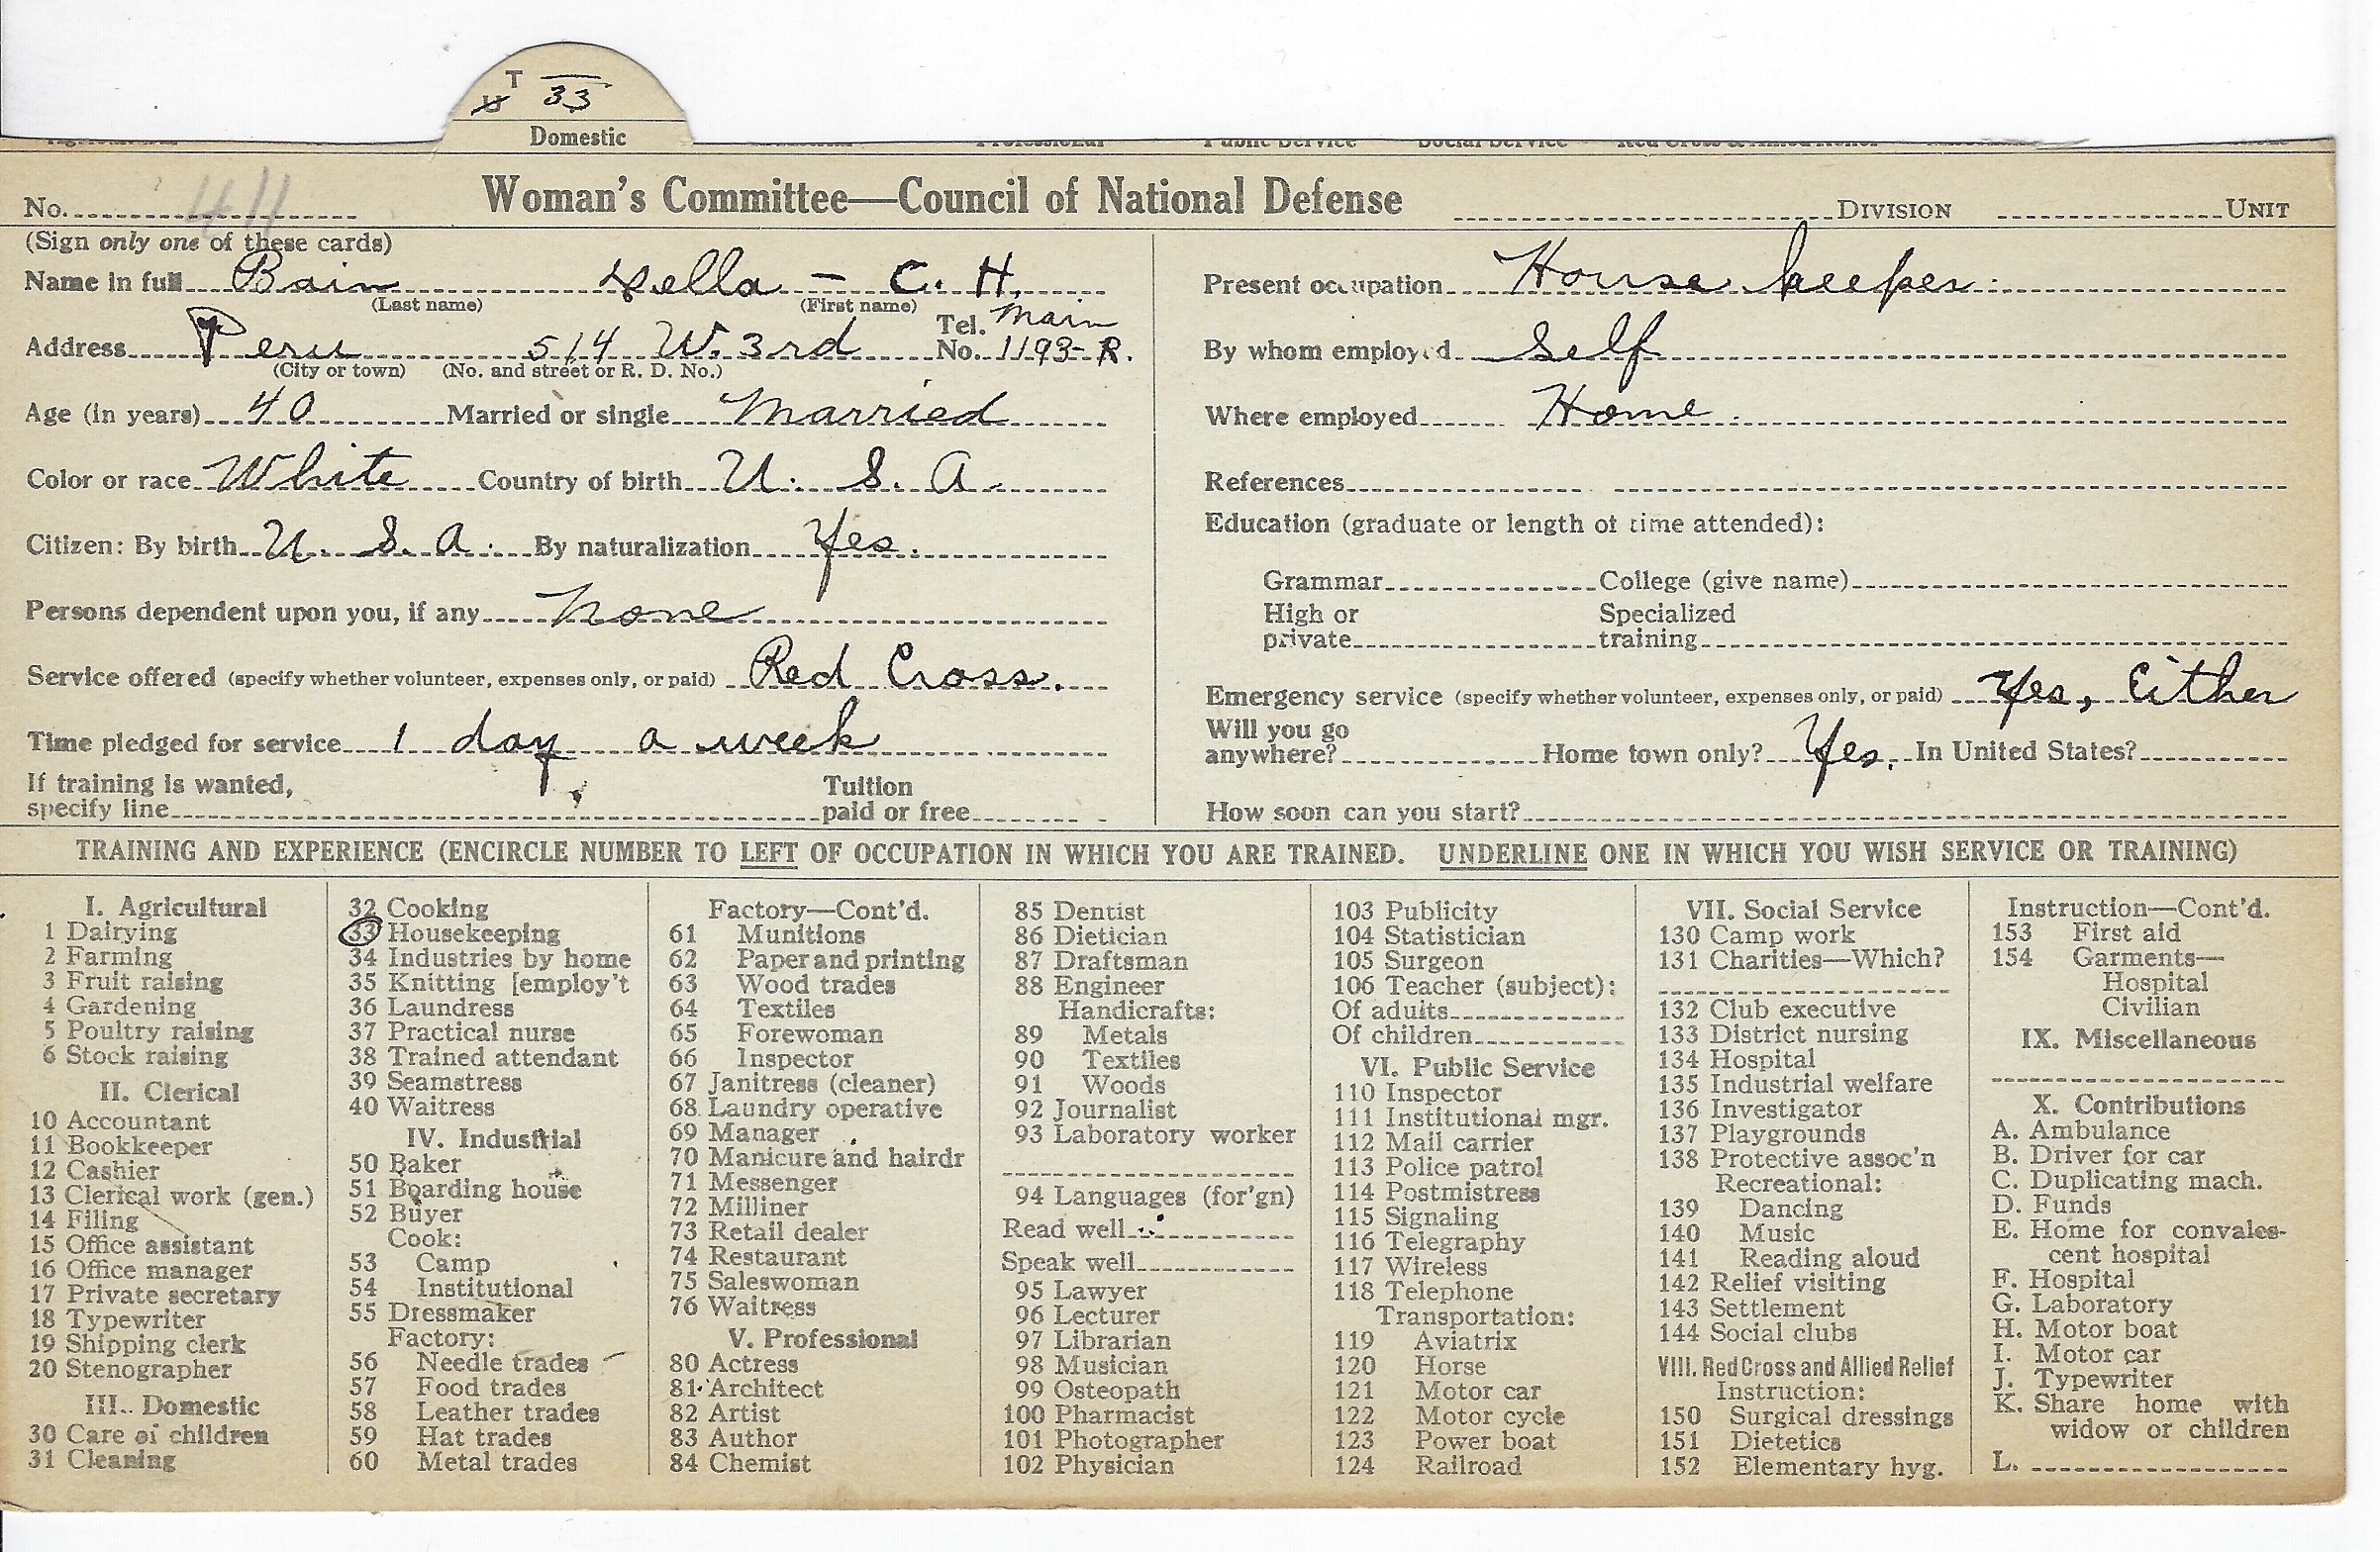 T 33
Domestic
No. 411 Woman's Committee—Council of National Defense DIVISION UNIT
(Sign only one of these cards)
Name in full Bain Della - C. H.
(Last name) (First name)
Address Peru 514 W. 3rd Tel. No. Main 1193-R.
(City or town) (No. and street or R. D. No.)
Age (in years) 40 Married or single Married
Color or race White Country of birth U. S. A.
Citizen: By birth U. S. A. By naturalization Yes.
Persons dependent upon you, if any None
Service offered (specify whether volunteer, expenses only, or paid) Red Cross.
Time pledged for service 1 day a week
If training is wanted, specify line Tuition paid or free
Present occupation House keeper.
By whom employed Self
Where employed Home.
References
Education (graduate or length of time attended):
Grammar College (give name)
High or private Specialized training
Emergency service (specify whether volunteer, expenses only, or paid) Yes, Either
Will you go anywhere? Home town only? Yes. In United States?
How soon can you start?
TRAINING AND EXPERIENCE (ENCIRCLE NUMBER TO LEFT OF OCCUPATION IN WHICH YOU ARE TRAINED. UNDERLINE ONE IN WHICH YOU WISH SERVICE OR TRAINING)
I. Agricultural
1 Dairying
2 Farming
3 Fruit raising
4 Gardening
5 Poultry raising
6 Stock raising
II. Clerical
10 Accountant
11 Bookkeeper
12 Cashier
13 Clerical work (gen.)
14 Filing
15 Office assistant
16 Office manager
17 Private secretary
18 Typewriter
19 Shipping clerk
20 Stenographer
III. Domestic
30 Care of children
31 Cleaning
32 Cooking
33 Housekeeping
34 Industries by home
35 Knitting [employ't
36 Laundress
37 Practical nurse
38 Trained attendant
39 Seamstress
40 Waitress
IV. Industrial
50 Baker
51 Boarding house
52 Buyer
Cook:
53 Camp
54 Institutional
55 Dressmaker
Factory:
56 Needle trades
57 Food trades
58 Leather trades
59 Hat trades
60 Metal trades
Factory—Cont'd.
61 Munitions
62 Paper and printing
63 Wood trades
64 Textiles
65 Forewoman
66 Inspector
67 Janitress (cleaner)
68 Laundry operative
69 Manager
70 Manicure and hairdr
71 Messenger
72 Milliner
73 Retail dealer
74 Restaurant
75 Saleswoman
76 Waitress
V. Professional
80 Actress
81 Architect
82 Artist
83 Author
84 Chemist
85 Dentist
86 Dietician
87 Draftsman
88 Engineer
Handicrafts:
89 Metals
90 Textiles
91 Woods
92 Journalist
93 Laboratory worker
94 Languages (for'gn)
Read well
Speak well
95 Lawyer
96 Lecturer
97 Librarian
98 Musician
99 Osteopath
100 Pharmacist
101 Photographer
102 Physician
103 Publicity
104 Statistician
105 Surgeon
106 Teacher (subject):
Of adults
Of children
VI. Public Service
110 Inspector
111 Institutional mgr.
112 Mail carrier
113 Police patrol
114 Postmistress
115 Signaling
116 Telegraphy
117 Wireless
118 Telephone
Transportation:
119 Aviatrix
120 Horse
121 Motor car
122 Motor cycle
123 Power boat
124 Railroad
VII. Social Service
130 Camp work
131 Charities—Which?
132 Club executive
133 District nursing
134 Hospital
135 Industrial welfare
136 Investigator
137 Playgrounds
138 Protective assoc'n
Recreational:
139 Dancing
140 Music
141 Reading aloud
142 Relief visiting
143 Settlement
144 Social clubs
VIII. Red Cross and Allied Relief
Instruction:
150 Surgical dressings
151 Dietetics
152 Elementary hyg.
Instruction—Cont'd.
153 First aid
154 Garments—
Hospital
Civilian
IX. Miscellaneous
X. Contributions
A. Ambulance
B. Driver for car
C. Duplicating mach.
D. Funds
E. Home for convales-
cent hospital
F. Hospital
G. Laboratory
H. Motor boat
I. Motor car
J. Typewriter
K. Share home with
widow or children
L.